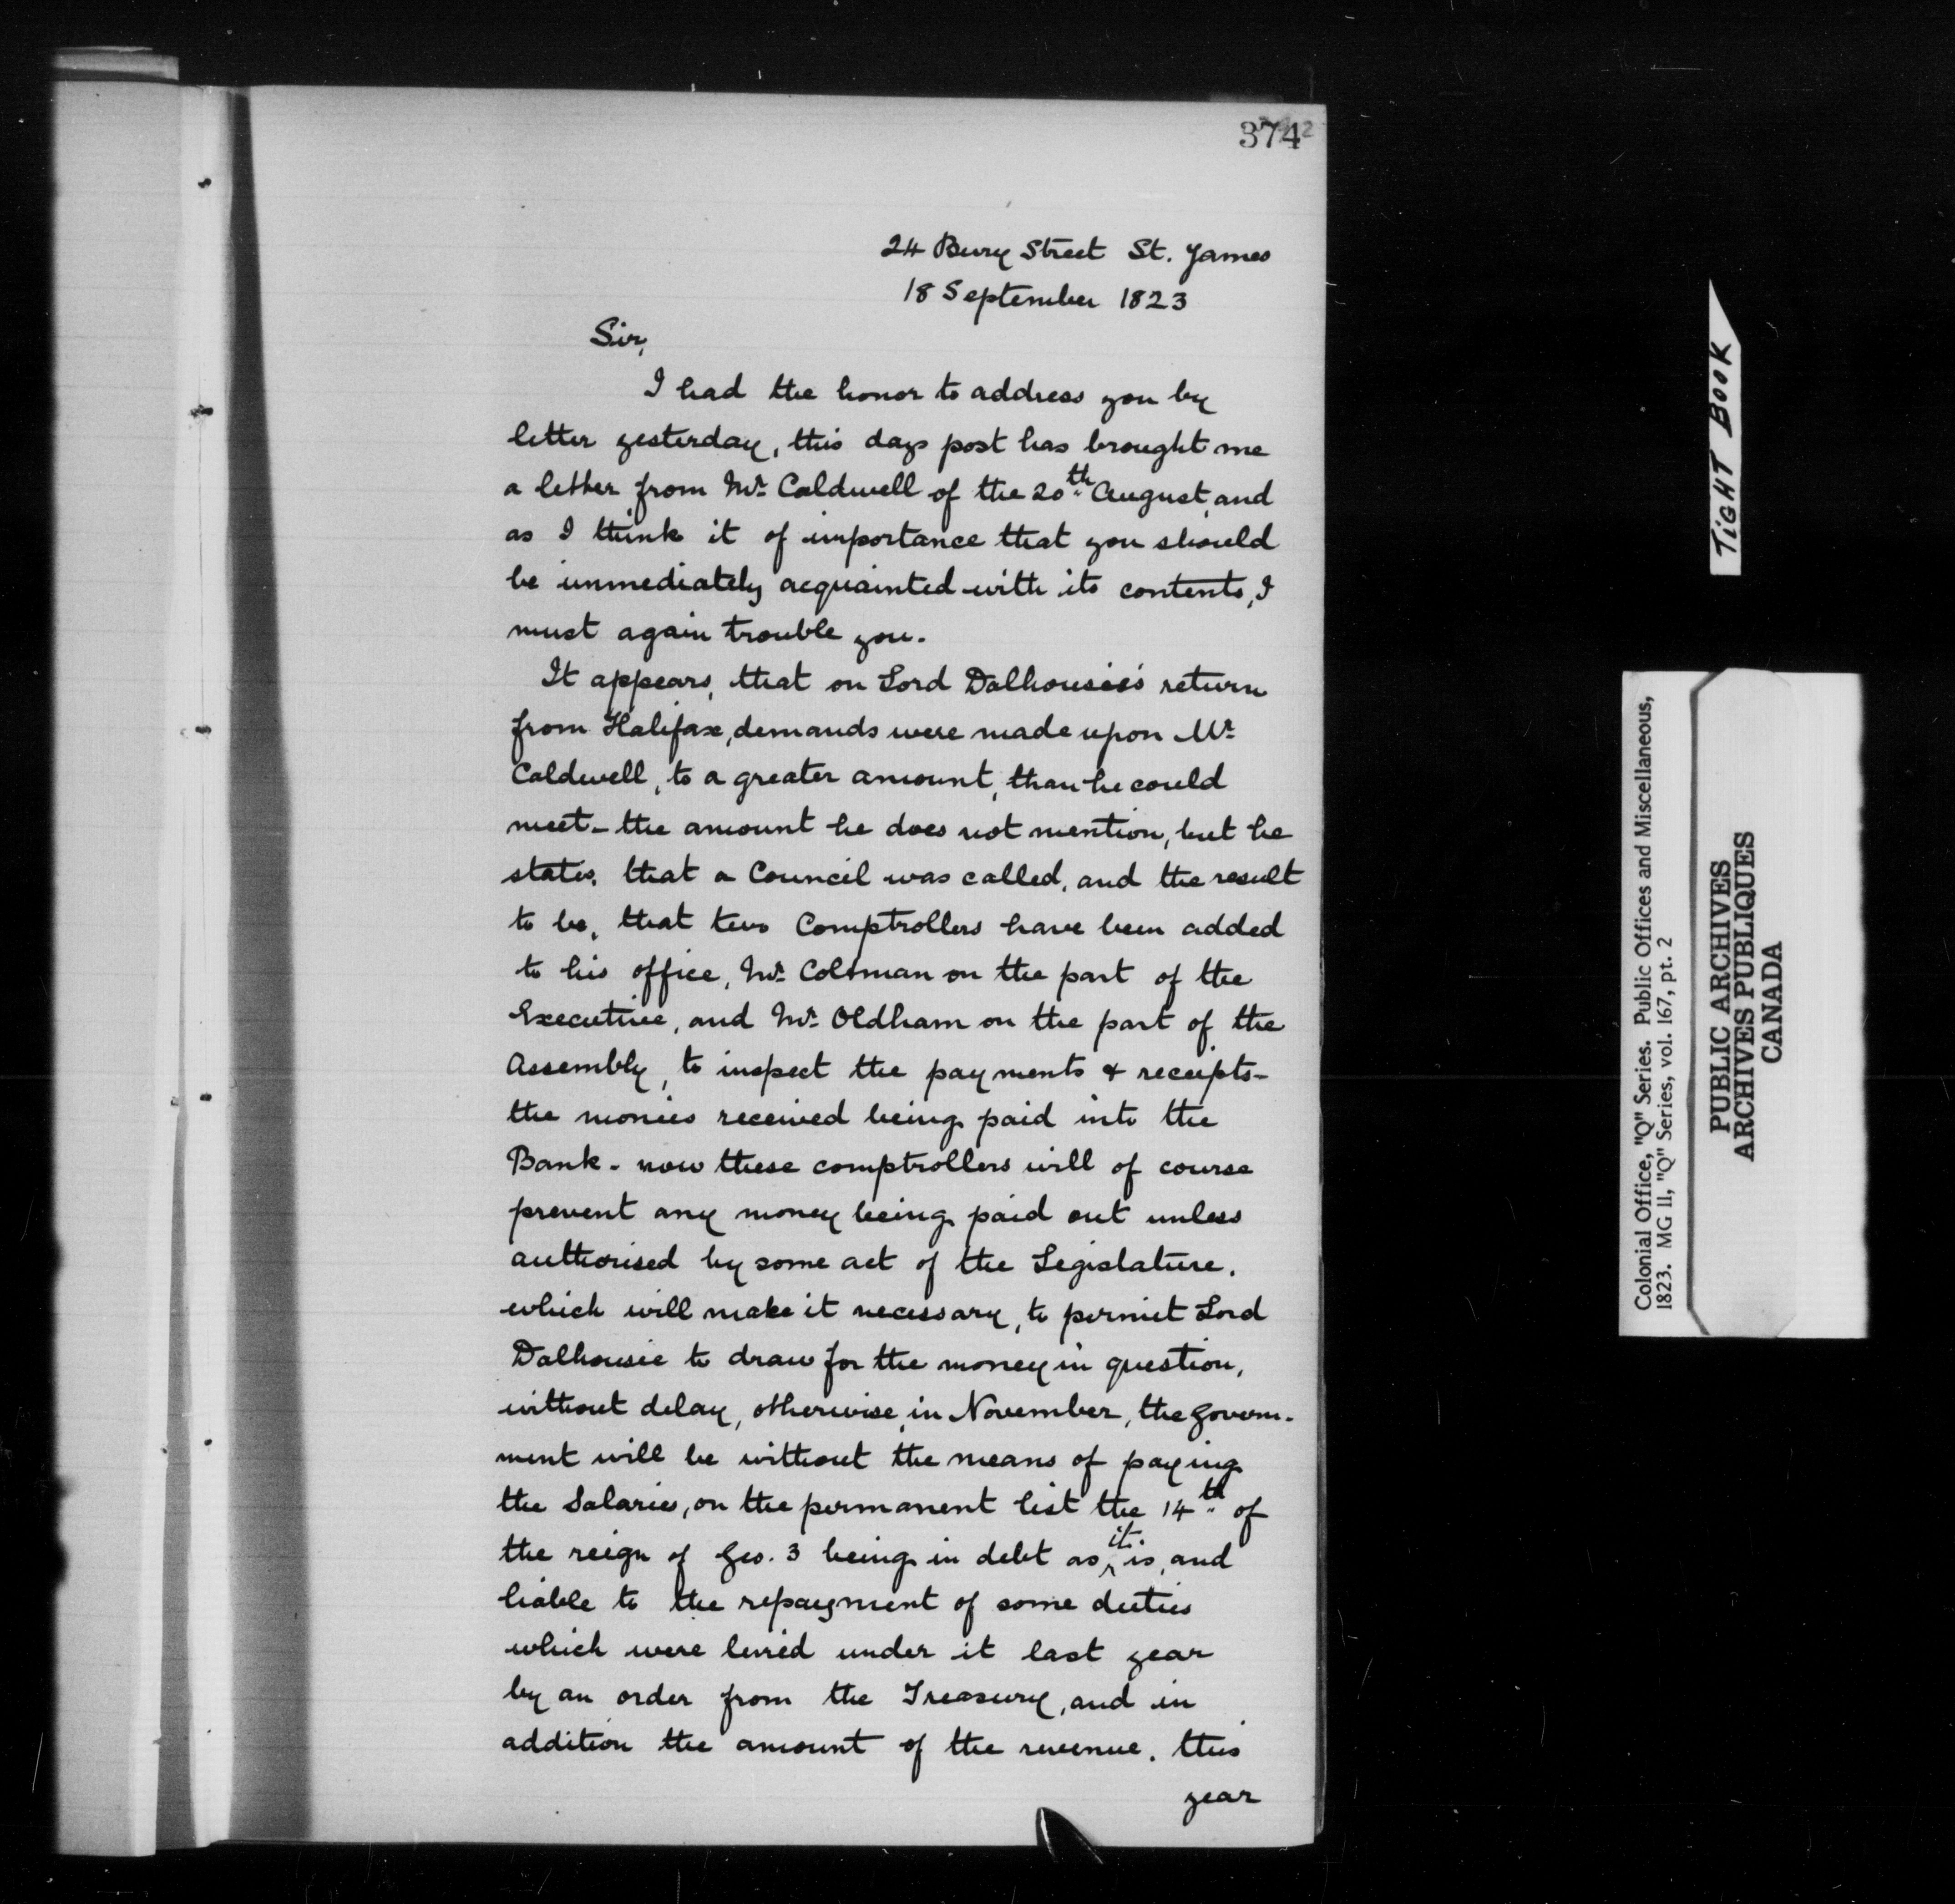 374
24 Bury Street St. James
18 September 1823
Sir,
I had the honor to address you by
letter yesterday, this days post has brought me
a letter from Mr. Caldwell of the 20th August, and
as I think it of importance that you should
be immediately acquainted with its contents, I
must again trouble you.
It appears, that on Lord Dalhousie's return
from Halifax, demands were made upon Mr.
Caldwell, to a greater amount, than he could
meet - the amount he does not mention, but he
states, that a Council was called, and the result
to be, that two Comptrollers have been added
to his office, Mr. Coltman on the part of the
Executive, and Mr. Oldham on the part of the
Assembly, to inspect the payments & receipts -
the monies received being paid into the
Bank - now these comptrollers will of course
prevent any money being paid out unless
authorised by some act of the Legislature,
which will make it necessary, to permit Lord
Dalhousie to draw for the money in question,
without delay, otherwise, in November, the govern-
ment will be without the means of paying
the Salaries, on the permanent list the 14th of
the reign of Geo. 3 being in debt as it is, and
liable to the repayment of some duties
which were levied under it last year
by an order from the Treasury, and in
addition the amount of the revenue, this
year
TIGHT BOOK
Colonial Office, "Q" Series. Public Offices and Miscellaneous,
1823. MG 11, "Q" Series, vol. 167, pt. 2
PUBLIC ARCHIVES
ARCHIVES PUBLIQUES
CANADA